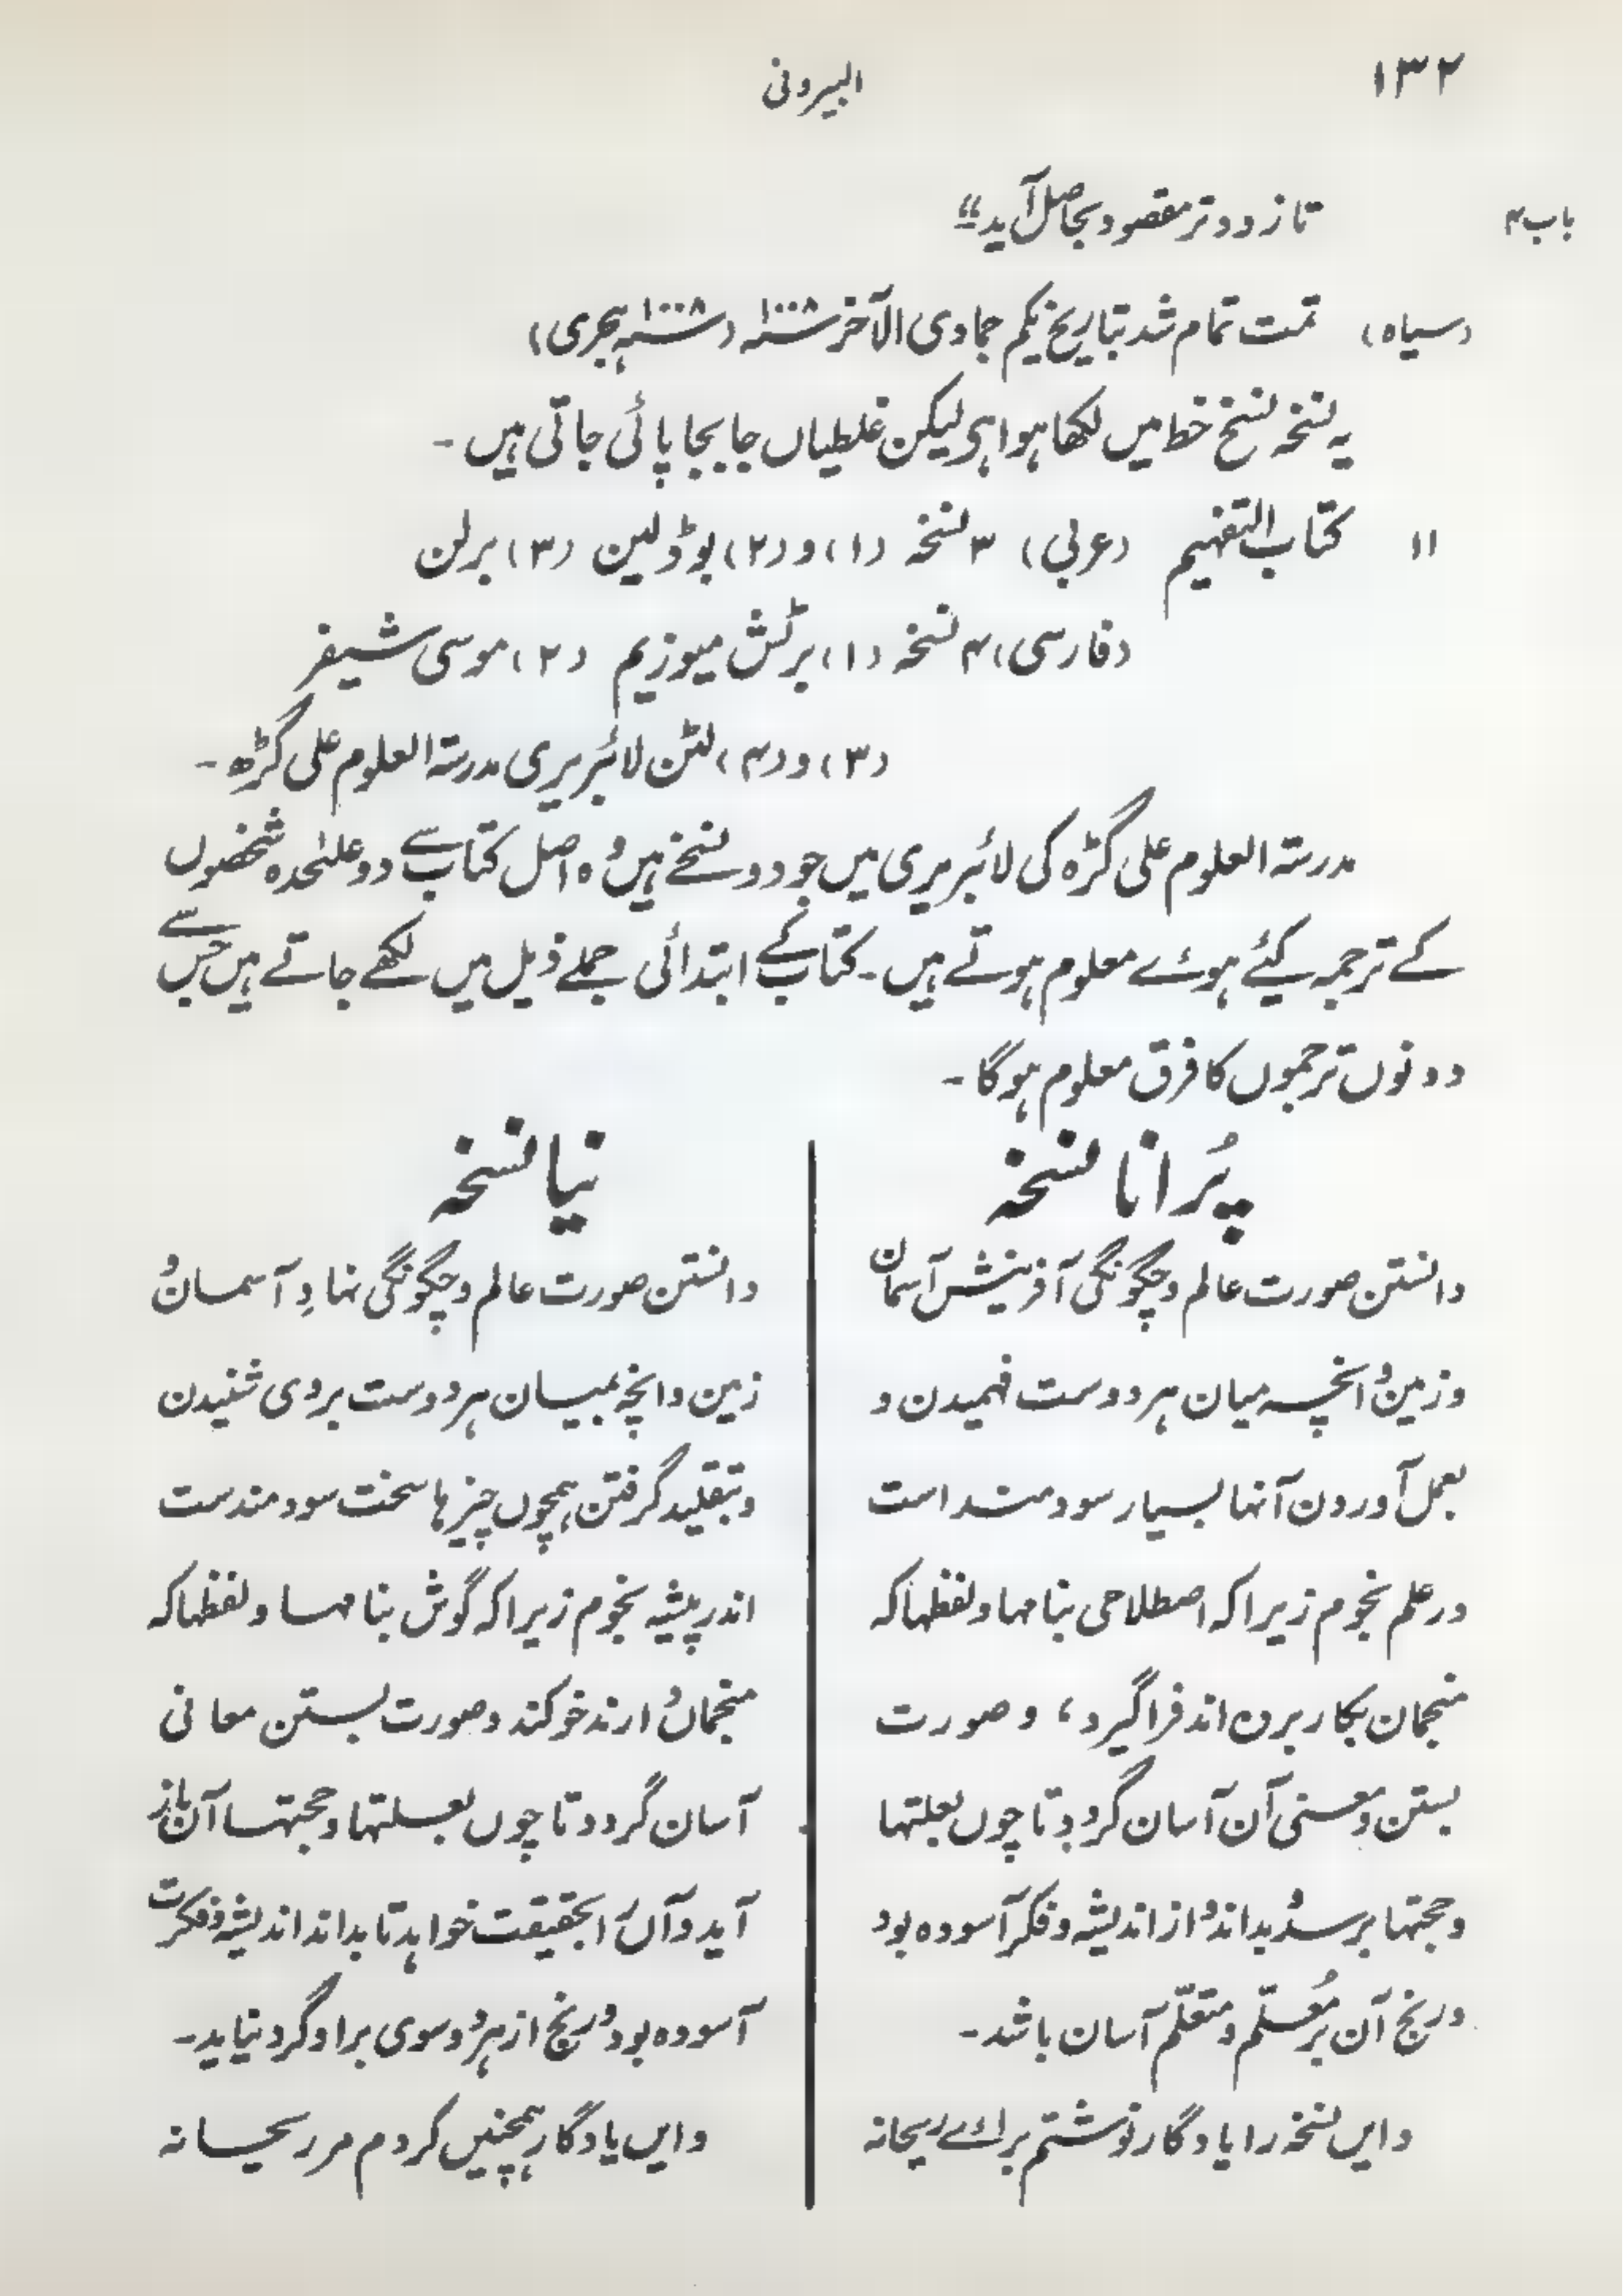 ۱۳۲
البیرونی
باب۴
تا زودتر مقصود بحاصل آید"
(سیاہ) تمت تمام شد بتاریخ یکم جمادی الآخر ۱۰۰۸سنہ (۱۰۰۸سنہ ہجری)
یہ نسخہ نسخ خط میں لکھا ہوا ہی لیکن غلطیاں جابجا پائی جاتی ہیں ۔
۱۱ کتاب التفہیم (عربی) ۳ نسخہ (۱) و (۲) بوڈلین (۳) برلن
(فارسی) ۴ نسخہ (۱) برٹش میوزیم (۲) موسی شیفر
(۳) و (۴) لٹن لائبریری مدرستہ العلوم علی گڑھ ۔
مدرستہ العلوم علی گڑہ کی لائبریری میں جو دو نسخے ہیں وُہ اصل کتاب سے دو علٰحدہ شخصوں
کے ترجمہ کیئے ہوئے معلوم ہوتے ہیں ۔ کتاب کے ابتدائی جملے ذیل میں لکھے جاتے ہیں جس سے
دونوں ترجموں کا فرق معلوم ہوگا ۔
پُرانا نسخہ
دانستن صورت عالم و چگونگی آفرینش آسمان
و زمین و انچہ میان ہر دوست فہمیدن و
بعمل آوردن آنہا بسیار سودمند است
در علم نجوم زیرا کہ اصطلاحی بنامہا و لفظہا کہ
منجمان بکار بردن اند فراگیرد، و صورت
بستن و معنی آن آسان گردد تا چوں بعلتہا
و حجتہا برسد و بداند و از اندیشہ و فکر آسودہ بود
و رنج آن بر مُعلّم و متعلّم آسان باشد ۔
و ایں نسخہ را یادگار نوشتم براے ریحانہ
نیا نسخہ
دانستن صورت عالم و چگونگی نہادِ آسمان و
زمین و انچہ بمیان ہر دوست بروی شنیدن
و بتقلید گرفتن ہمچوں چیزہا سخت سودمندست
اندر پیشہ نجوم زیرا کہ گوش بنامہا و لفظہا کہ
منجمان دارند خو کند و صورت بستن معانی
آسان گردد تا چوں بعلتہا و حجتہا آن باز
آید و آں را بحقیقت خواہد تا بداند اندیشہ و فکرت
آسودہ بود و رنج از ہر دو سوی بر او گرد نیاید ۔
و ایں یادگار ہمچنیں کردم مر ریحانہ